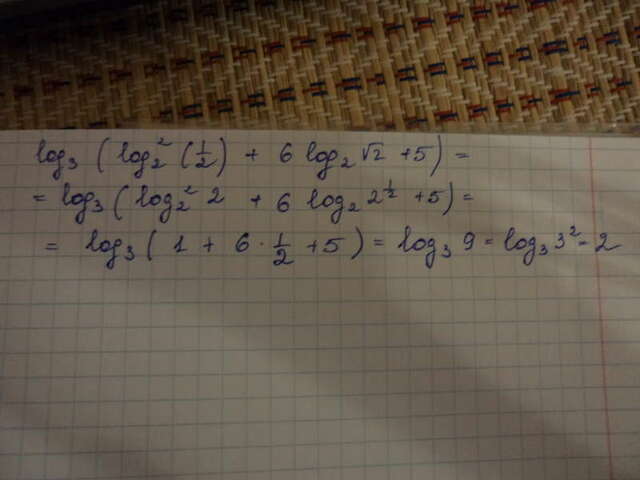 log₃ (log₂² (1/2) + 6 log₂ √2 + 5) =
= log₃ (log₂² 2 + 6 log₂ 2^(1/2) + 5) =
= log₃ (1 + 6 · 1/2 + 5) = log₃ 9 = log₃ 3² = 2